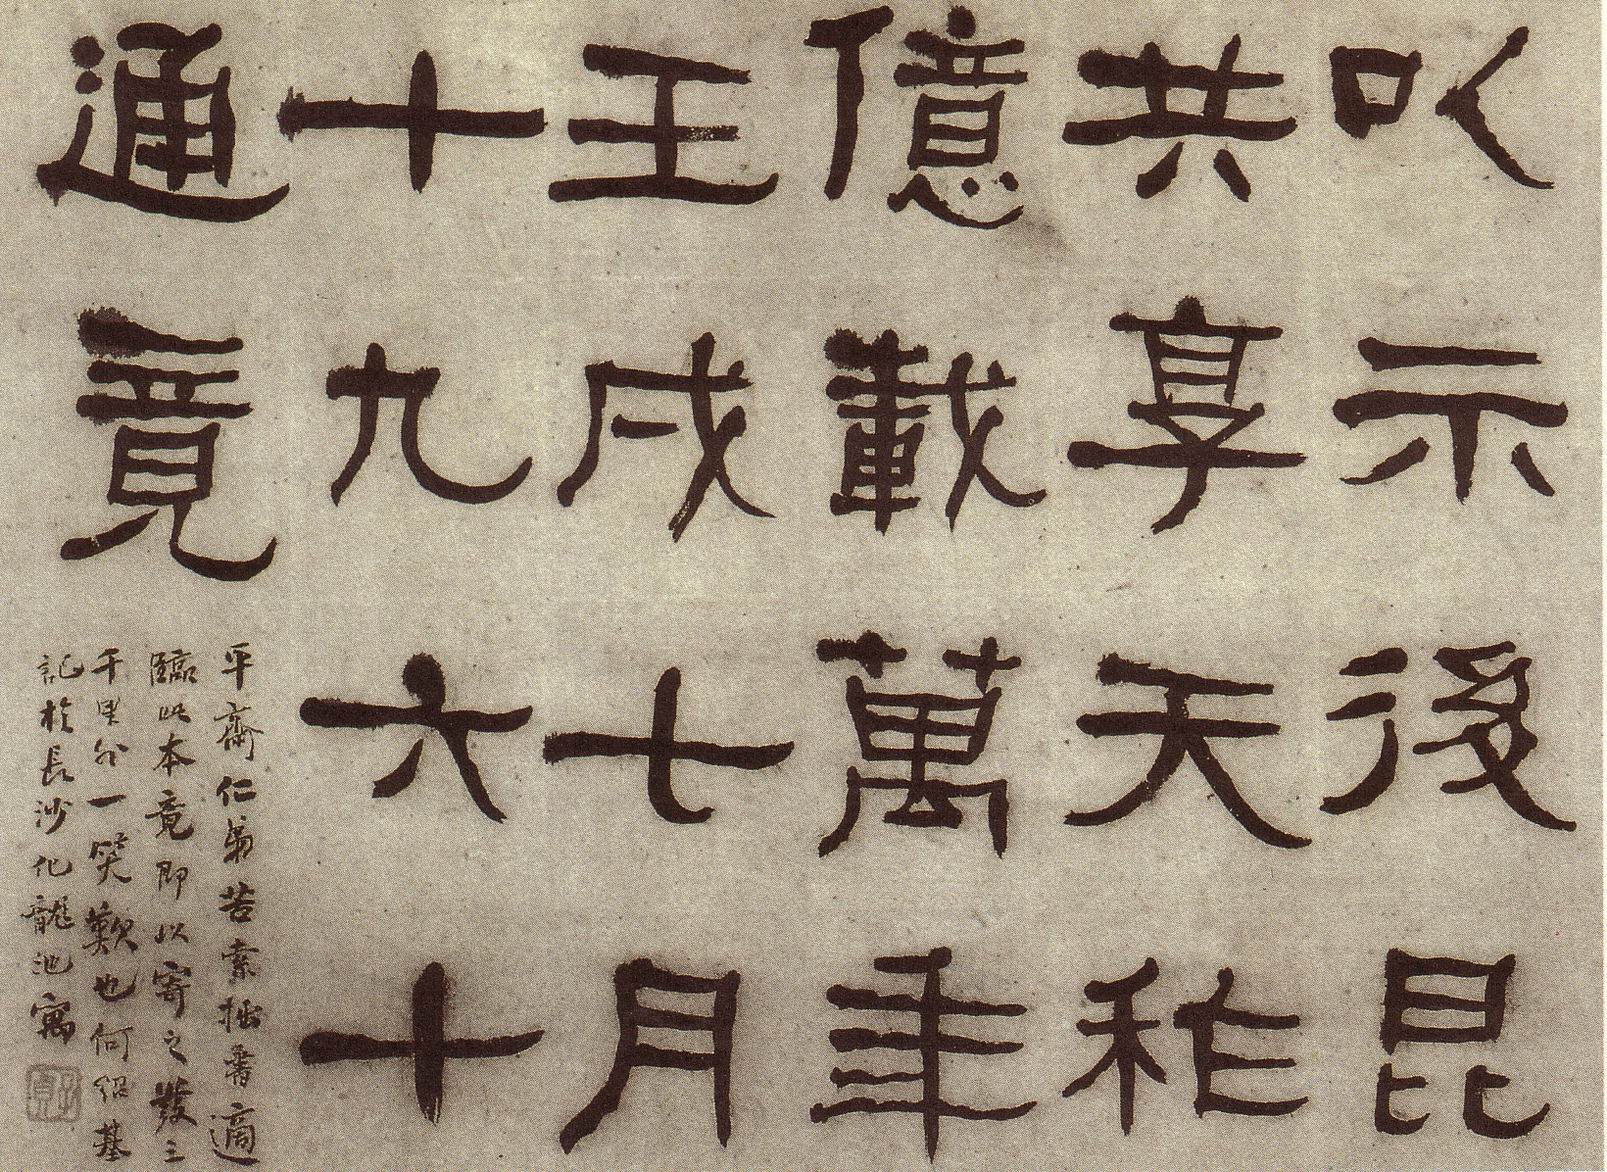 以示後昆
共享天祚
億載萬年
壬戌七月
十九六十
通竟
平齋仁弟苦索拙書適
臨此本竟即以寄之發三
千里外一笑歎也何紹基
記於長沙化龍池寓
子貞